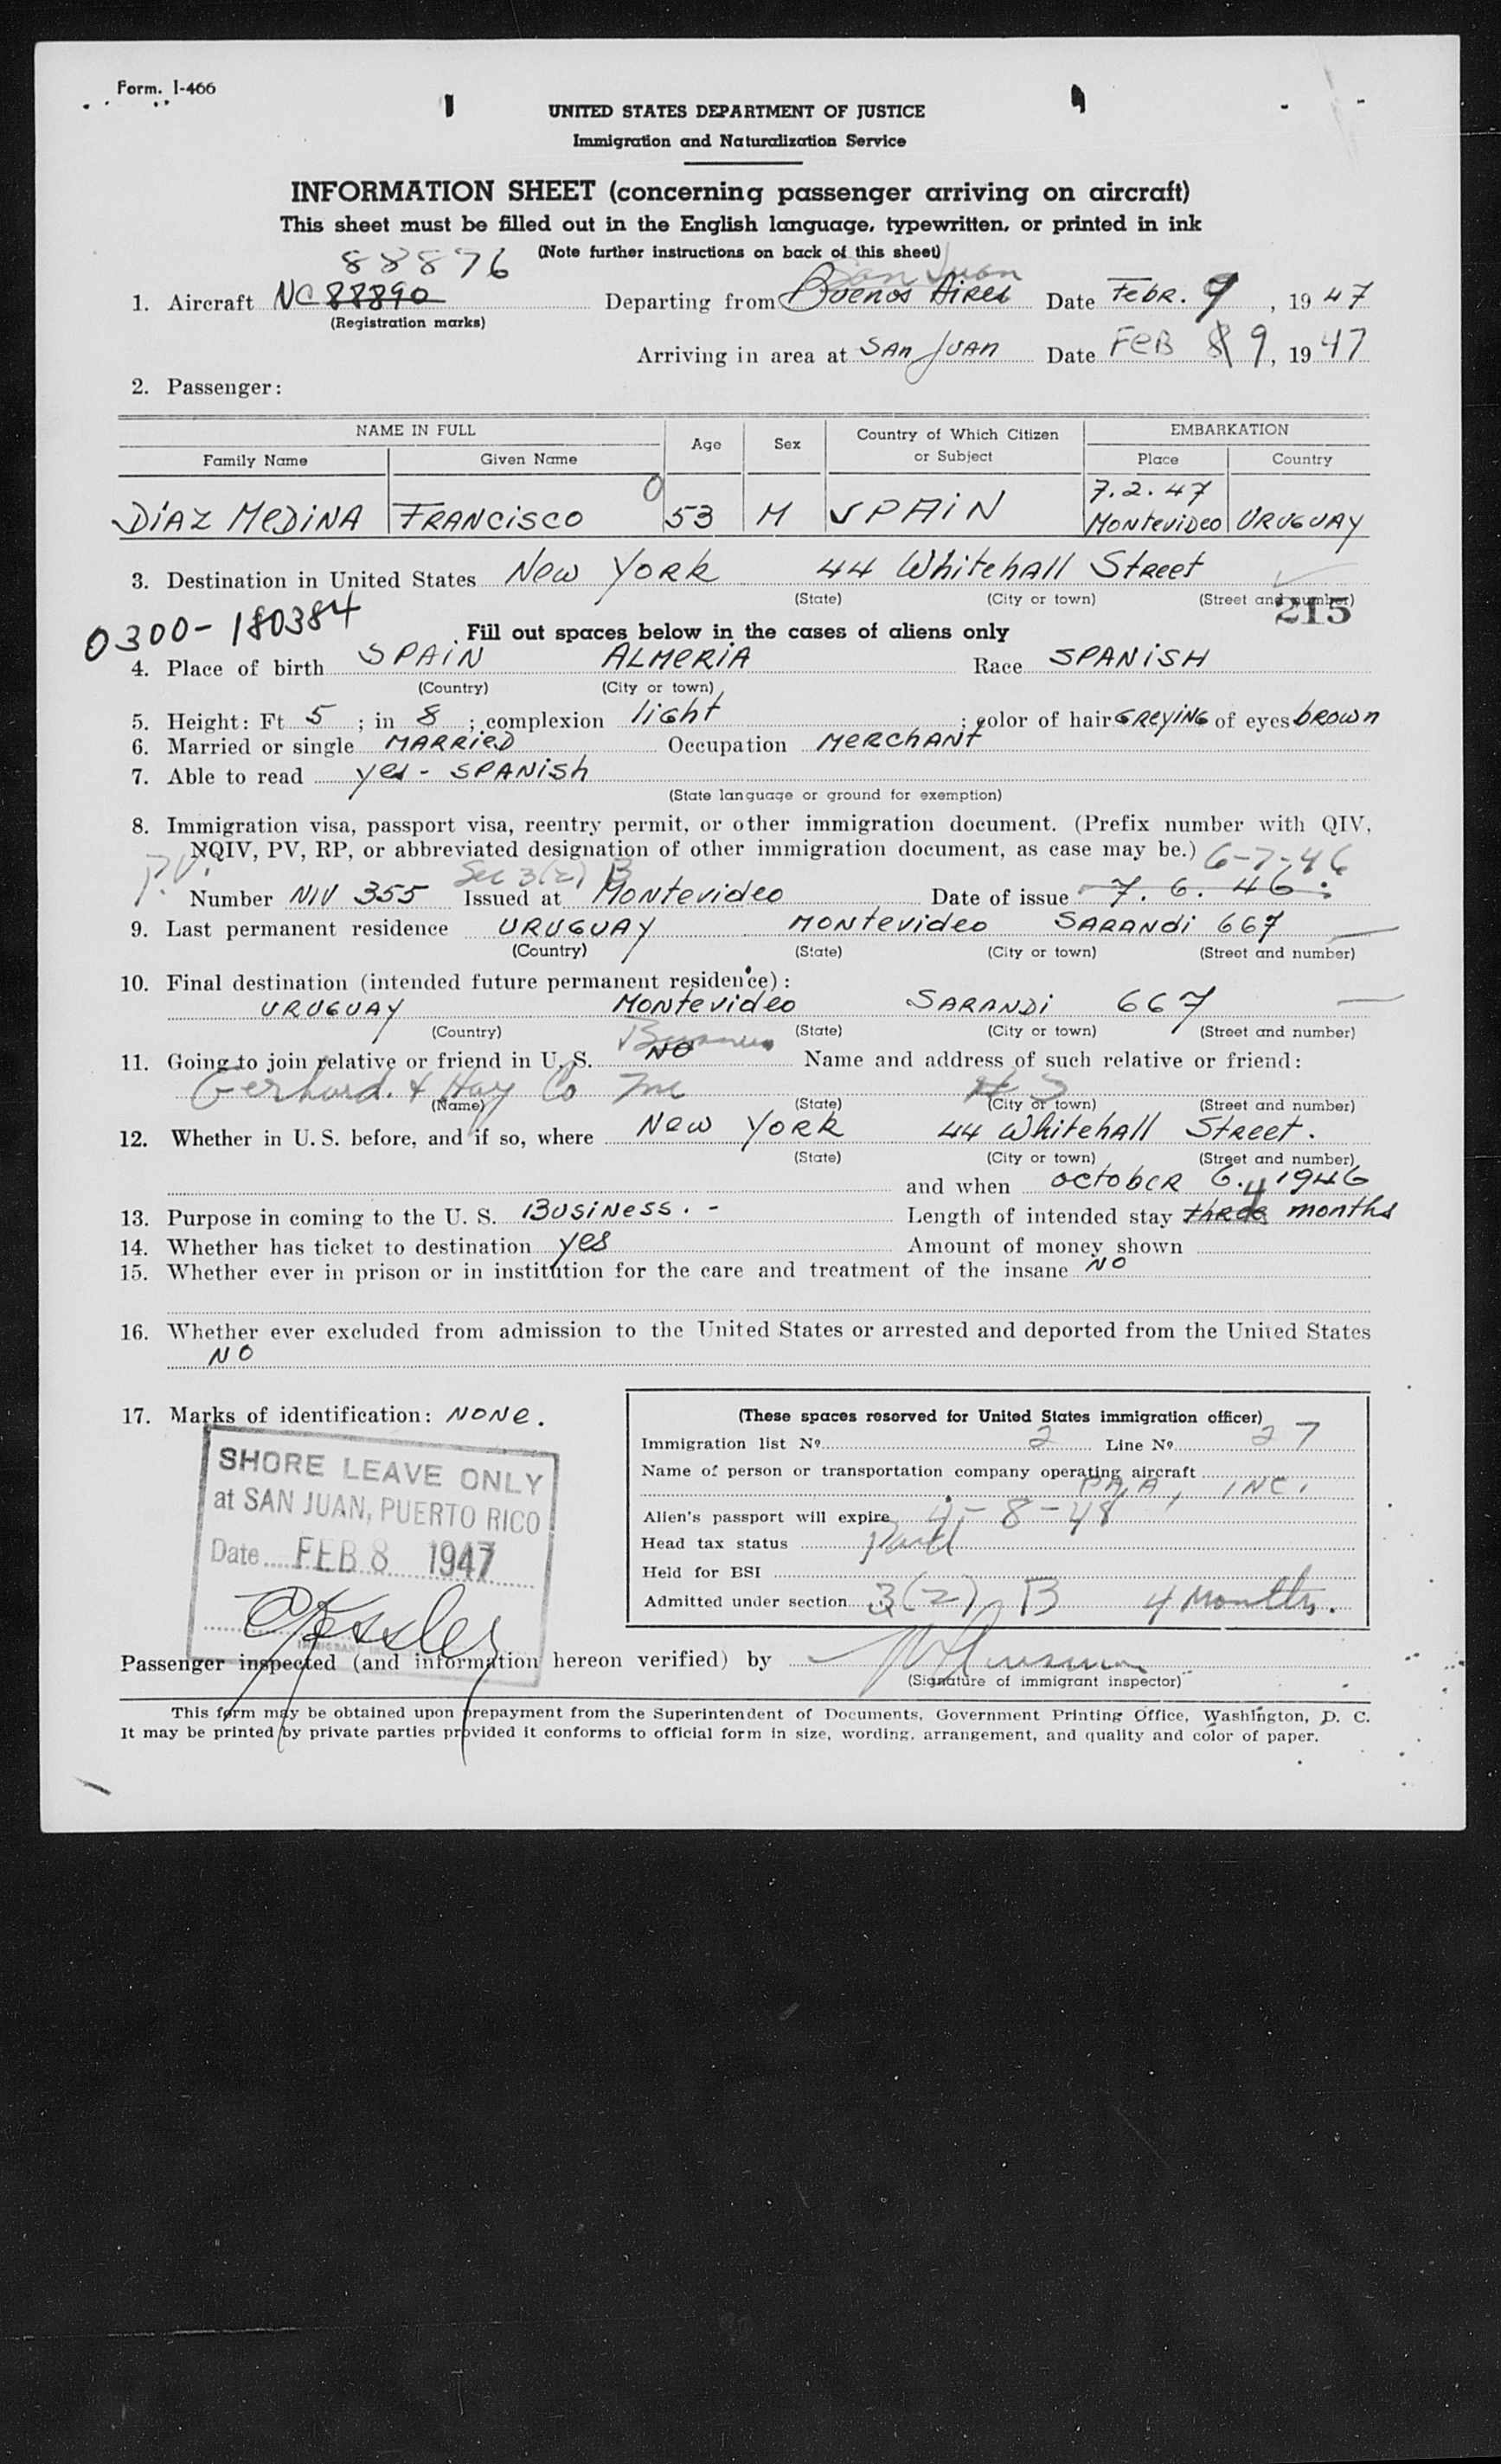 Form. I-466
UNITED STATES DEPARTMENT OF JUSTICE
Immigration and Naturalization Service
INFORMATION SHEET (concerning passenger arriving on aircraft)
This sheet must be filled out in the English language, typewritten, or printed in ink
(Note further instructions on back of this sheet)
88876 San Juan
1. Aircraft NC 88890 Departing from Buenos Aires Date Febr. 9, 1947
(Registration marks)
Arriving in area at San Juan Date FeB 8 9, 1947
2. Passenger:
NAME IN FULL Age Sex Country of Which Citizen or Subject EMBARKATION
Family Name Given Name Place Country
0 7.2.47
DiAZ MeDiNA FRANCisco 53 M SPAiN MonteviDeo URUGUAY
3. Destination in United States New York 44 Whitehall Street
(State) (City or town) (Street and number)
215
0300-180384
Fill out spaces below in the cases of aliens only
4. Place of birth SPAiN ALMERiA Race SPANiSH
(Country) (City or town)
5. Height: Ft 5 ; in 8 ; complexion light ; color of hair GReYiNG of eyes brown
6. Married or single MARRieD Occupation MeRCHANT
7. Able to read yes - SPANish
(State language or ground for exemption)
8. Immigration visa, passport visa, reentry permit, or other immigration document. (Prefix number with QIV,
NQIV, PV, RP, or abbreviated designation of other immigration document, as case may be.) 6-7-46
P.V. Sec 3(2) B
Number NIV 355 Issued at Montevideo Date of issue 7. 6. 46.
9. Last permanent residence URUGUAY Montevideo SARANdi 667
(Country) (State) (City or town) (Street and number)
10. Final destination (intended future permanent residence):
URUGUAY Montevideo SARANDi 667
(Country) (State) (City or town) (Street and number)
Business
11. Going to join relative or friend in U. S. NO Name and address of such relative or friend:
Gerhard & Hay Co Inc
(Name) (State) (City or town) (Street and number)
12. Whether in U. S. before, and if so, where New York 44 Whitehall Street.
(State) (City or town) (Street and number)
and when October 6. 1946
13. Purpose in coming to the U. S. Business. - Length of intended stay three 4 months
14. Whether has ticket to destination yes Amount of money shown
15. Whether ever in prison or in institution for the care and treatment of the insane NO
16. Whether ever excluded from admission to the United States or arrested and deported from the United States
NO
17. Marks of identification: NONe.
SHORE LEAVE ONLY
at SAN JUAN, PUERTO RICO
Date FEB 8 1947
(These spaces reserved for United States immigration officer)
Immigration list Nº 2 Line Nº 27
Name of person or transportation company operating aircraft
P.A.A., INC.
Alien's passport will expire 4-8-48
Head tax status Paid
Held for BSI
Admitted under section 3(2) B 4 Months.
Passenger inspected (and information hereon verified) by
(Signature of immigrant inspector)
This form may be obtained upon prepayment from the Superintendent of Documents, Government Printing Office, Washington, D. C.
It may be printed by private parties provided it conforms to official form in size, wording, arrangement, and quality and color of paper.